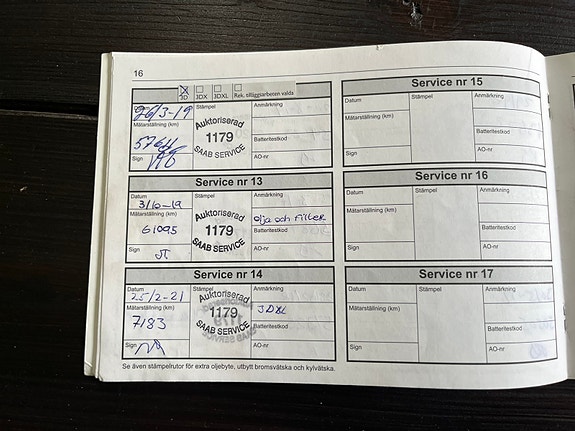 16
3D 3DX 3DXL Rek. tilläggsarbeten valda
26/3-19 Stämpel Anmärkning
Mätarställning (km)
Auktoriserad
1179
SAAB SERVICE
Batteritestkod
Sign
AO-nr
Service nr 13
Datum Stämpel Anmärkning
3/10-19
Mätarställning (km)
61095
Auktoriserad
1179
SAAB SERVICE
olja och Filter
Batteritestkod
Sign
AO-nr
Service nr 14
Datum Stämpel Anmärkning
25/2-21
Mätarställning (km)
7183
Auktoriserad
1179
SAAB SERVICE
3DXL
Batteritestkod
Sign
AO-nr
Se även stämpelrutor för extra oljebyte, utbytt bromsvätska och kylvätska.
Service nr 15
Datum Stämpel Anmärkning
Mätarställning (km)
Batteritestkod
Sign
AO-nr
Service nr 16
Datum Stämpel Anmärkning
Mätarställning (km)
Batteritestkod
Sign
AO-nr
Service nr 17
Datum Stämpel Anmärkning
Mätarställning (km)
Batteritestkod
Sign
AO-nr